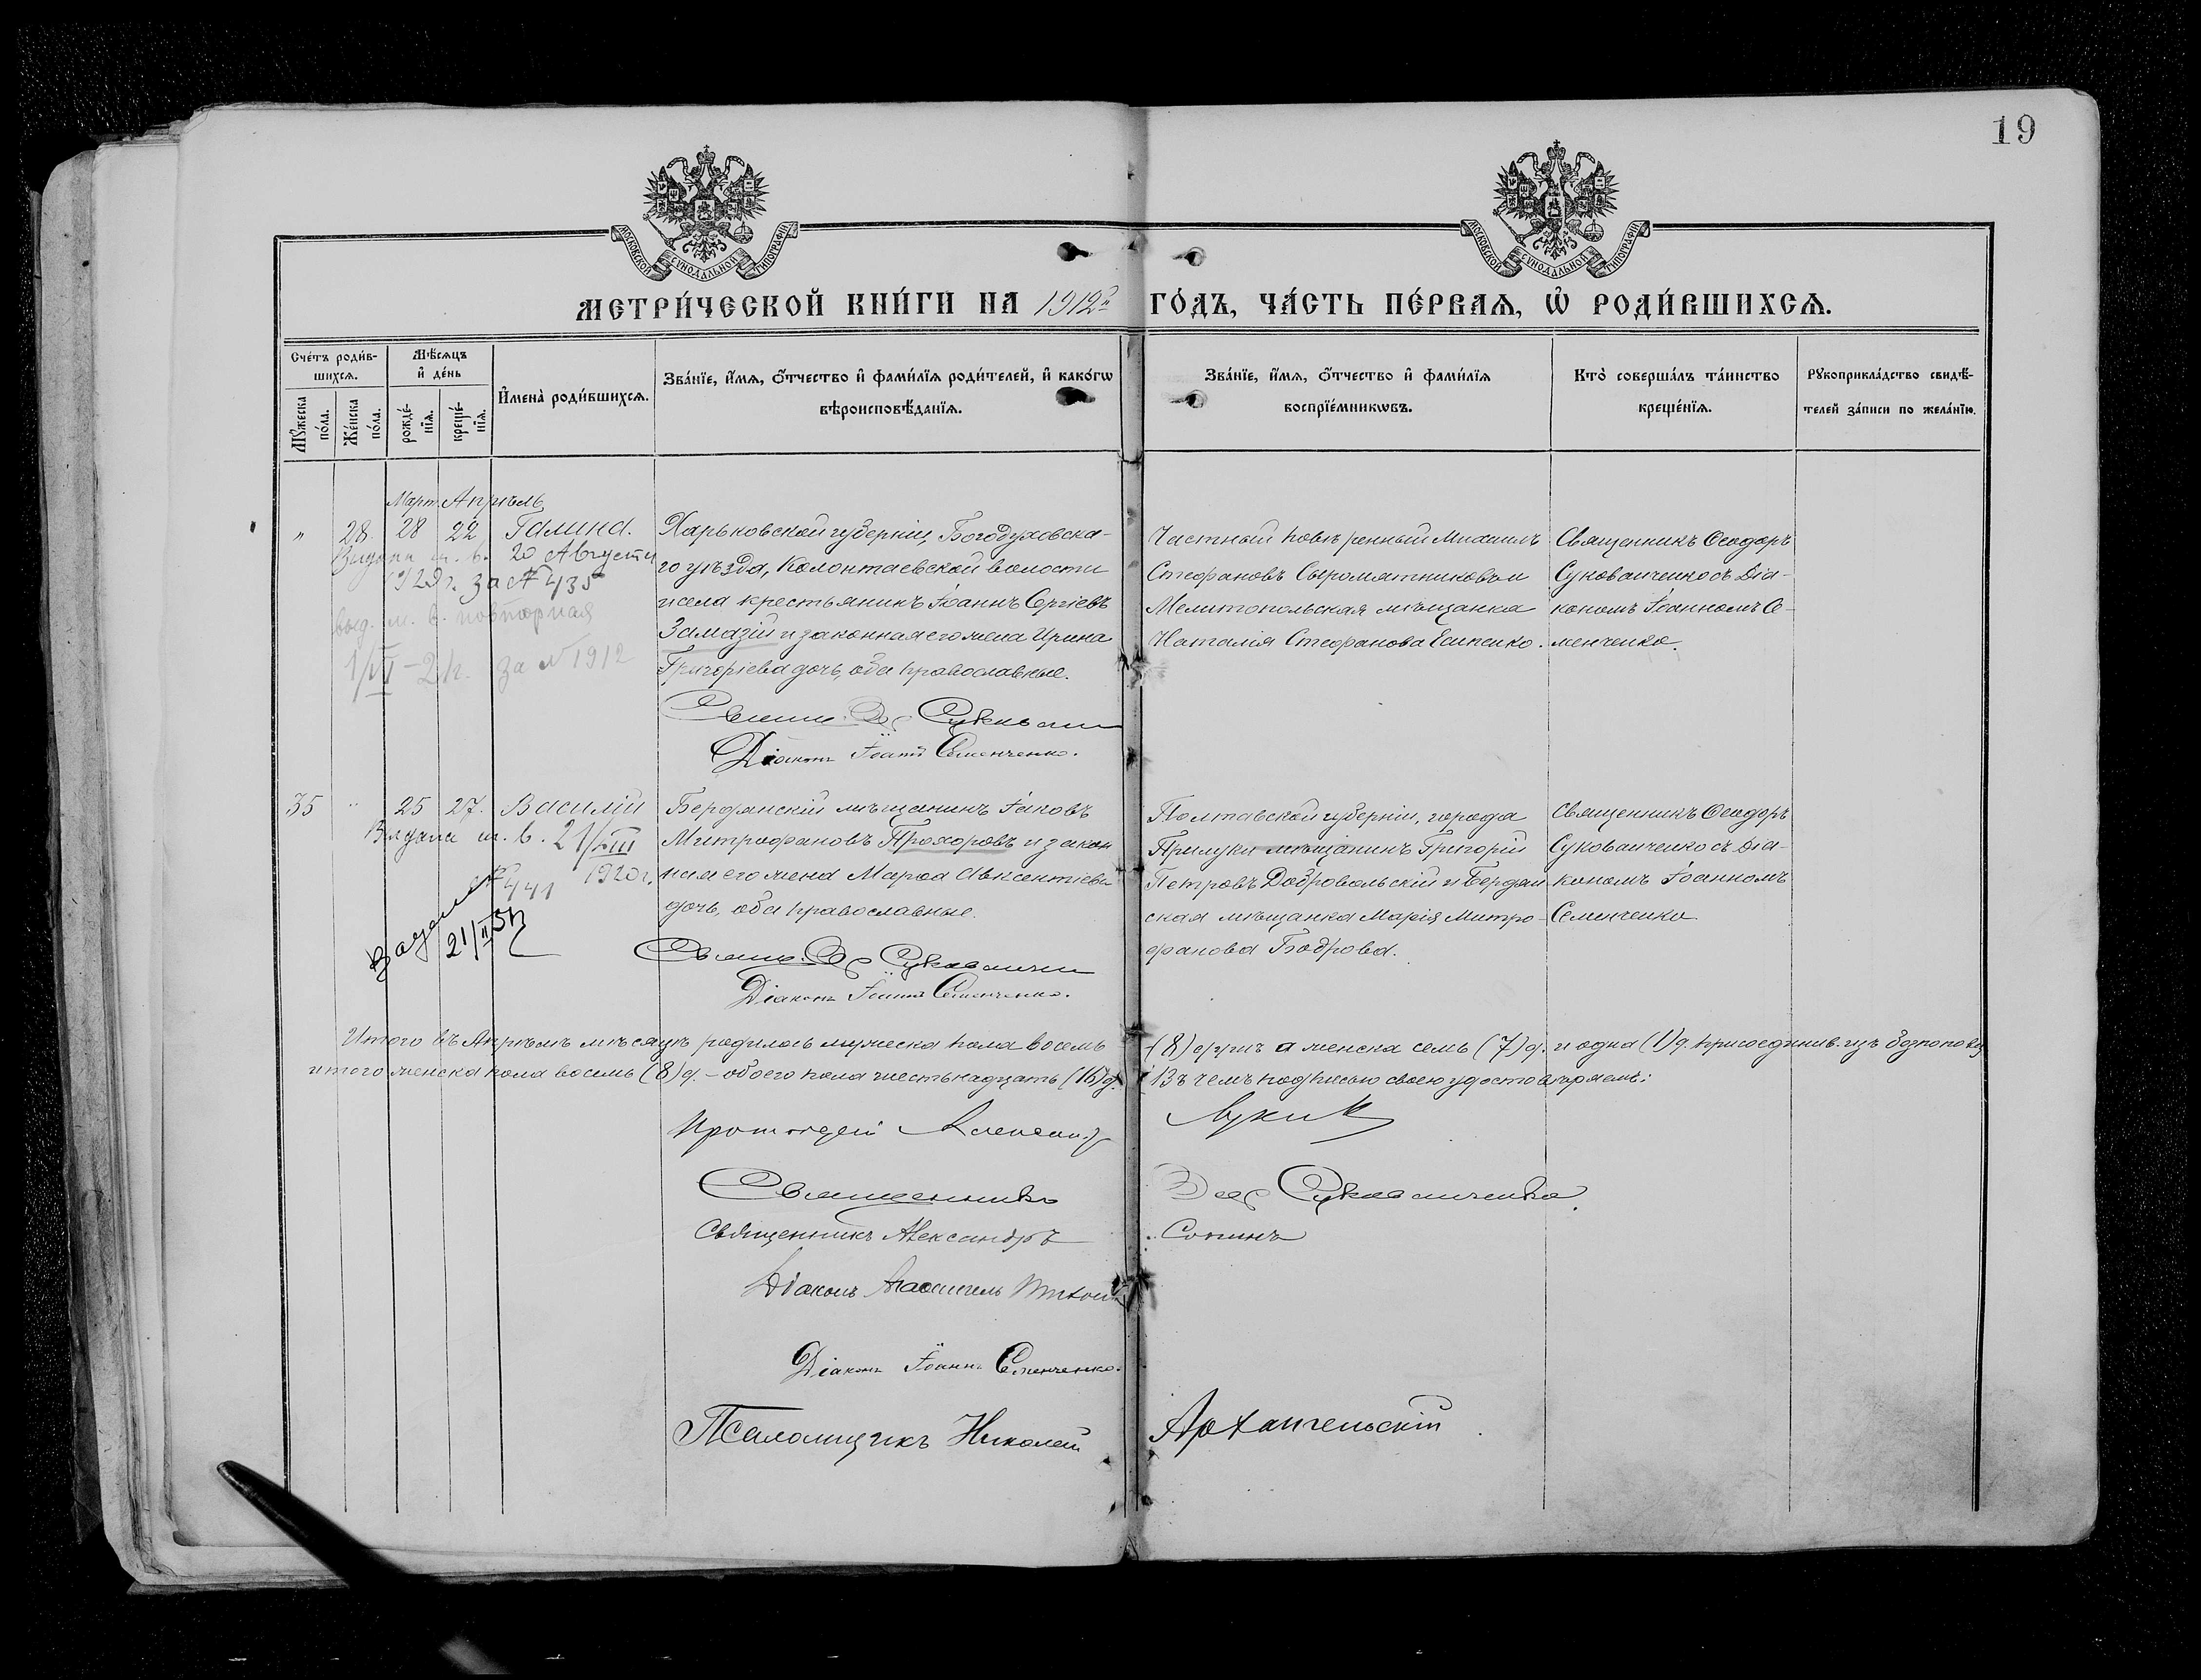 19
МОСКОВСКОЙ СѴНОДАЛЬНОЙ ТИПОГРАФІИ
МОСКОВСКОЙ СѴНОДАЛЬНОЙ ТИПОГРАФІИ
МЕТРИ́ЧЕСКОЙ КНИ́ГИ НА 1912й ГО́ДЪ, ЧА́СТЬ ПЕ́РВАѦ, Ѡ РОДИ́ВШИХСѦ.
Сче́тъ роди́в-
шихсѧ.
Мѣ́сѧцъ
и҆ де́нь
Мꙋ́жеска
по́ла.
Же́нска
по́ла.
рожде́-
нїѧ.
креще́-
нїѧ.
И҆мена̀ роди́вшихсѧ.
Зва́нїе, и҆́мѧ, ѻ҆́тчество и҆ фами́лїѧ роди́телей, и҆ како́гѡ
вѣроисповѣ́данїѧ.
Зва́нїе, и҆́мѧ, ѻ҆́тчество и҆ фами́лїѧ
воспрїе́мникѡвъ.
Кто̀ соверша́лъ та́инство
креще́нїѧ.
Рꙋкоприкла́дство свидѣ́-
телей за́писи по жела́нїю.
Март. Апрѣль
" 28. 28 22 Галина.
Выдана м. в. 20 Августа
192 г. за № 435
выд. м. в. повторная
за № 1912
Харьковской губерніи, Богодуховска-
го уѣзда, Колонтаевской волости
и села крестьянинъ Іоаннъ Сергіевъ
Замазій и законная его жена Ирина
Григоріева дочь, оба православные.
Діаконъ Іоаннъ Семенченко.
Частный повѣренный Михаилъ
Стефановъ Сыромятниковъ и
Мелитопольская мѣщанка
Наталія Стефанова Есипенко.
Священникъ Ѳеодоръ
Сукованченко съ Діа-
кономъ Іоанномъ Се-
менченко.
35 " 25 27. Василій
Выдана м. в. 21/VIII
1920 г.
№ 441
Выдана
21/II
Бердянскій мѣщанинъ Іаковъ
Митрофановъ Прохоровъ и закон
ная его жена Марѳа Авксентіева
дочь, оба православные.
Діаконъ Іоаннъ Семенченко.
Полтавской губерніи, города
Прилуки мѣщанинъ Григорій
Петровъ Добровольскій и Бердян
ская мѣщанка Марія Митро-
фанова Бодрова.
Священникъ Ѳеодоръ
Сукованченко съ Діа-
кономъ Іоанномъ
Семенченко
Итого въ Апрѣлѣ мѣсяцѣ родилось мужеска пола восемь (8) душъ а женска семь (7) д. и одна (1) д. присоединив. изъ
итого женска пола восемь (8) д. – обоего пола шестьнадцать (16) д. Въ чемъ подписью своею удостовѣряемъ:
Протоіерей
Священникъ Ѳеод Сукованченко.
Священникъ Александръ Сопинъ
Діаконъ
Діаконъ Іоаннъ Семенченко.
Псаломщикъ Николай Архангельскій